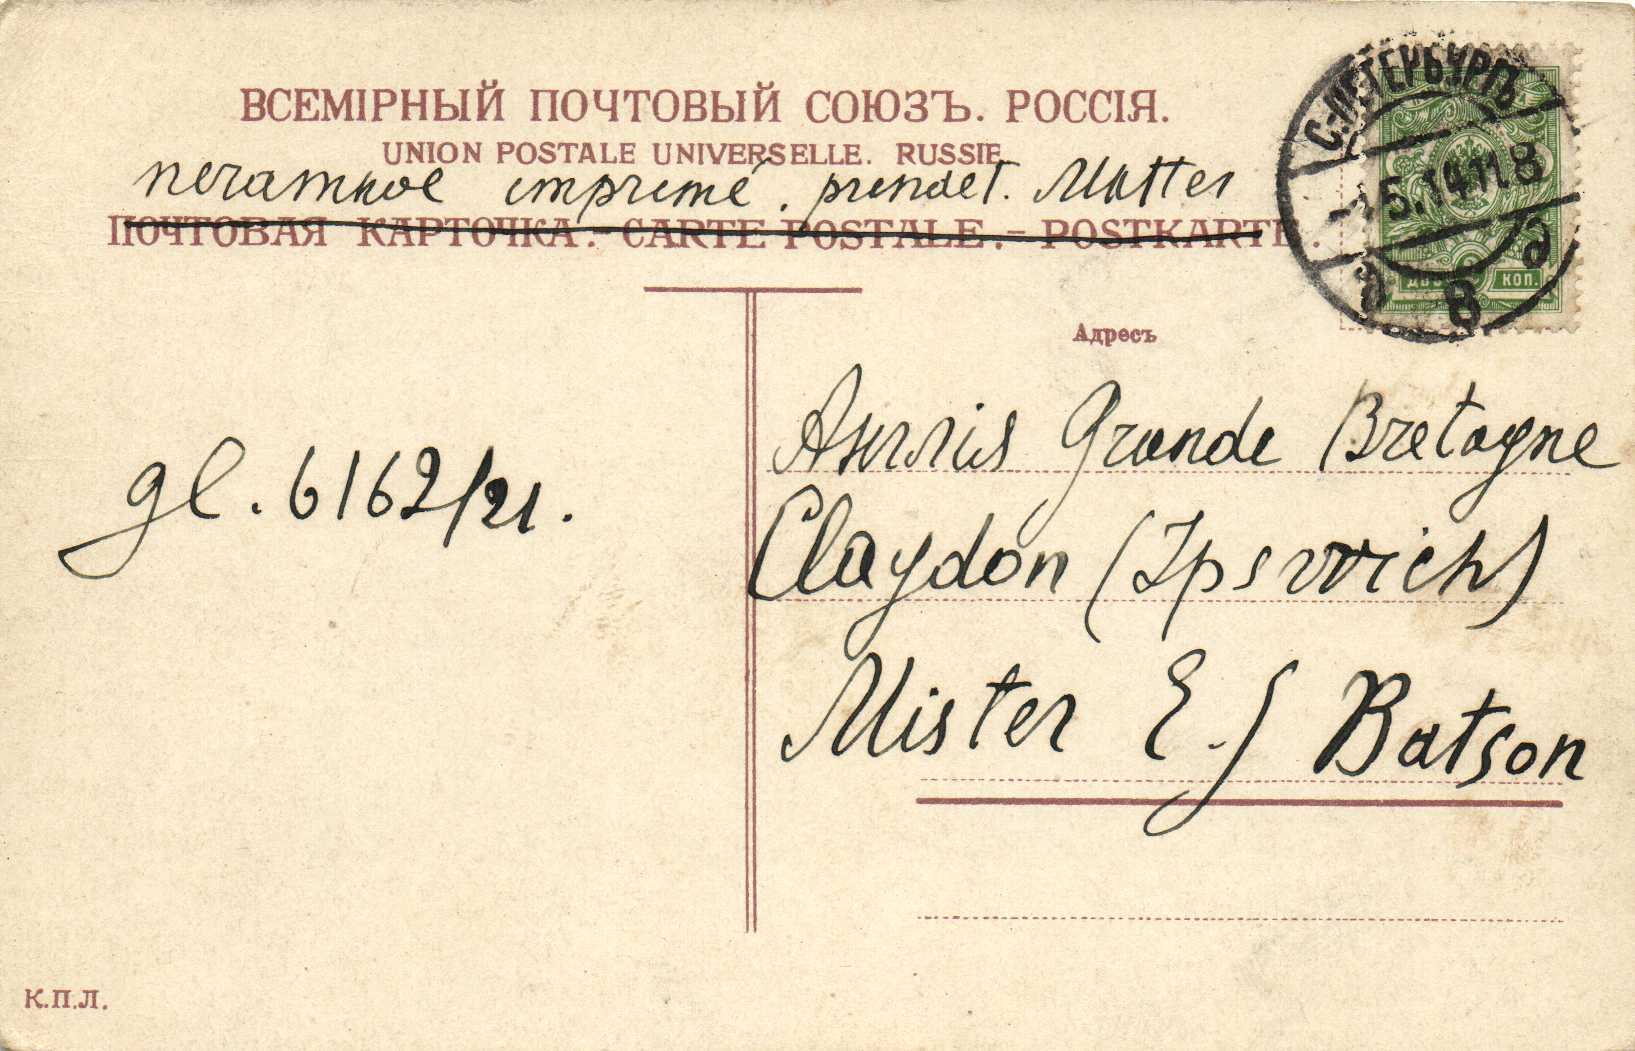 ВСЕМІРНЫЙ ПОЧТОВЫЙ СОЮЗЪ. РОССІЯ.
UNION POSTALE UNIVERSELLE. RUSSIE
печатное imprimé. printet. Matter
ПОЧТОВАЯ КАРТОЧКА.-CARTE POSTALE.-POSTKARTE.
С-ПЕТЕРБУРГЪ
-1.5.14.11.8
8
КОП.
Адресъ
Англія Grande Bretagne
Claydon (Ipsvvich)
Mister E. J Batson
gl. 6162/21.
К.П.Л.